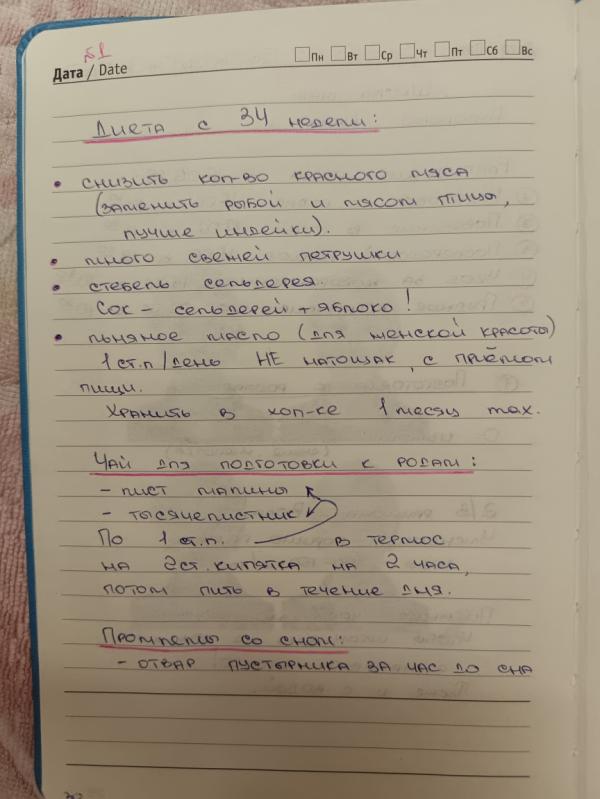 №1
Дата / Date
Пн Вт Ср Чт Пт Сб Вс
Диета с 34 недели:
• снизить кол-во красного мяса
(заменить рыбой и мясом птицы,
лучше индейки).
• много свежей петрушки
• стебель сельдерея
Сок - сельдерей + яблоко!
• льняное масло (для женской красоты)
1 ст.л/день НЕ натощак, с приёмом
пищи.
Хранить в хол-ке 1 месяц max.
Чай для подготовки к родам:
- лист малины
- тысячелистник
По 1 ст.л. в термос
на 2 ст. кипятка на 2 часа,
потом пить в течение дня.
Проблемы со сном:
- отвар пустырника за час до сна